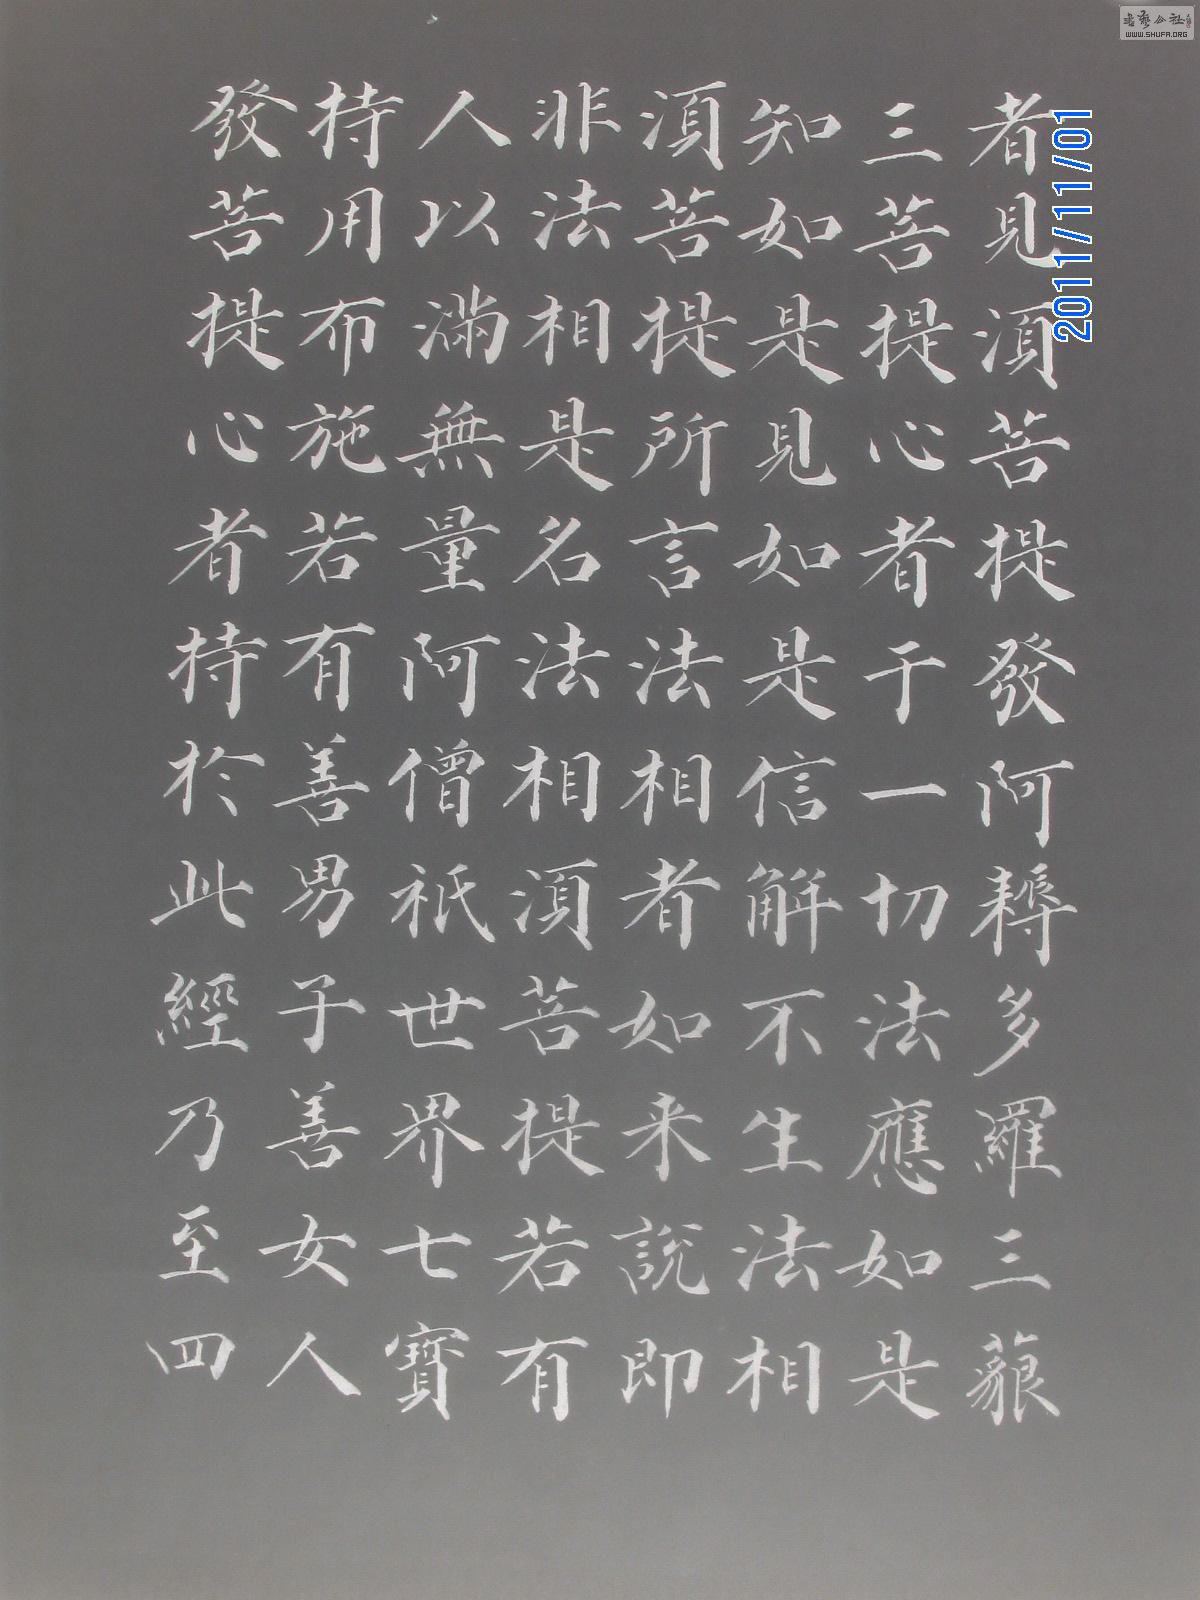 者見須菩提發阿耨多羅三藐
三菩提心者于一切法應如是
知如是見如是信解不生法相
須菩提所言法相者如来說即
非法相是名法相須菩提若有
人以滿無量阿僧祇世界七寶
持用布施若有善男子善女人
發菩提心者持於此經乃至四
2011/11/01
书艺公社
WWW.SHUFA.ORG